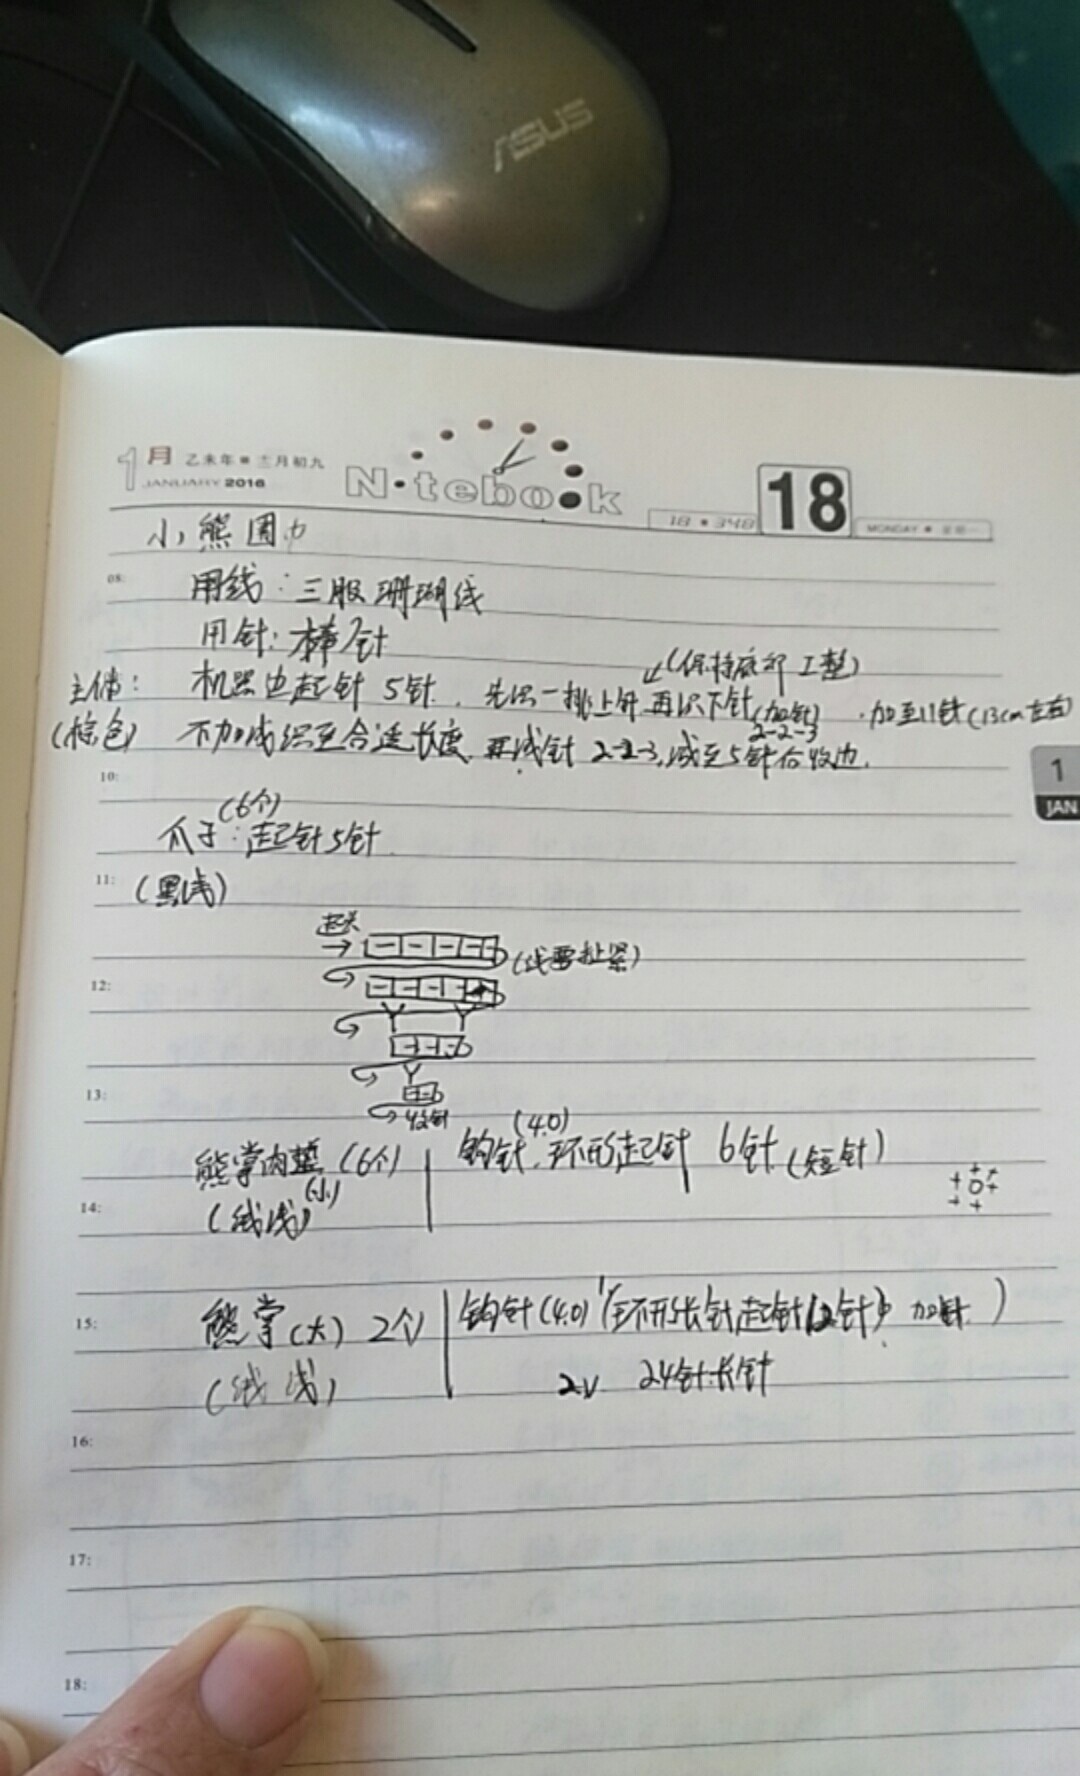 ASUS
1月 乙未年 十二月初九
JANUARY 2016
Notebook
18 348
18
MONDAY 星期一
小熊围巾
08:
用线：三股珊瑚线
用针：棒针
(保持底部工整)
主体： 机器边起针 5针，先织一排上针，再织下针(加针) 2-2-3，加至11针(13cm左右)
(棕色) 不加减织至合适长度，再减针 2-2-3，减至5针后收边.
10:
1
JAN
(6个)
爪子：起针5针.
11:
(黑线)
起头
(线要扯紧)
12:
13:
收针
熊掌肉垫(6个) 钩针(4.0)，环形起针 6针(短针)
(小)
14:
15:
熊掌(大) 2个 钩针(4.0) (环形长针起针12针) 加针)
2V 24针长针
16:
17:
18: